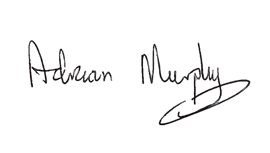 Adrian Murphy